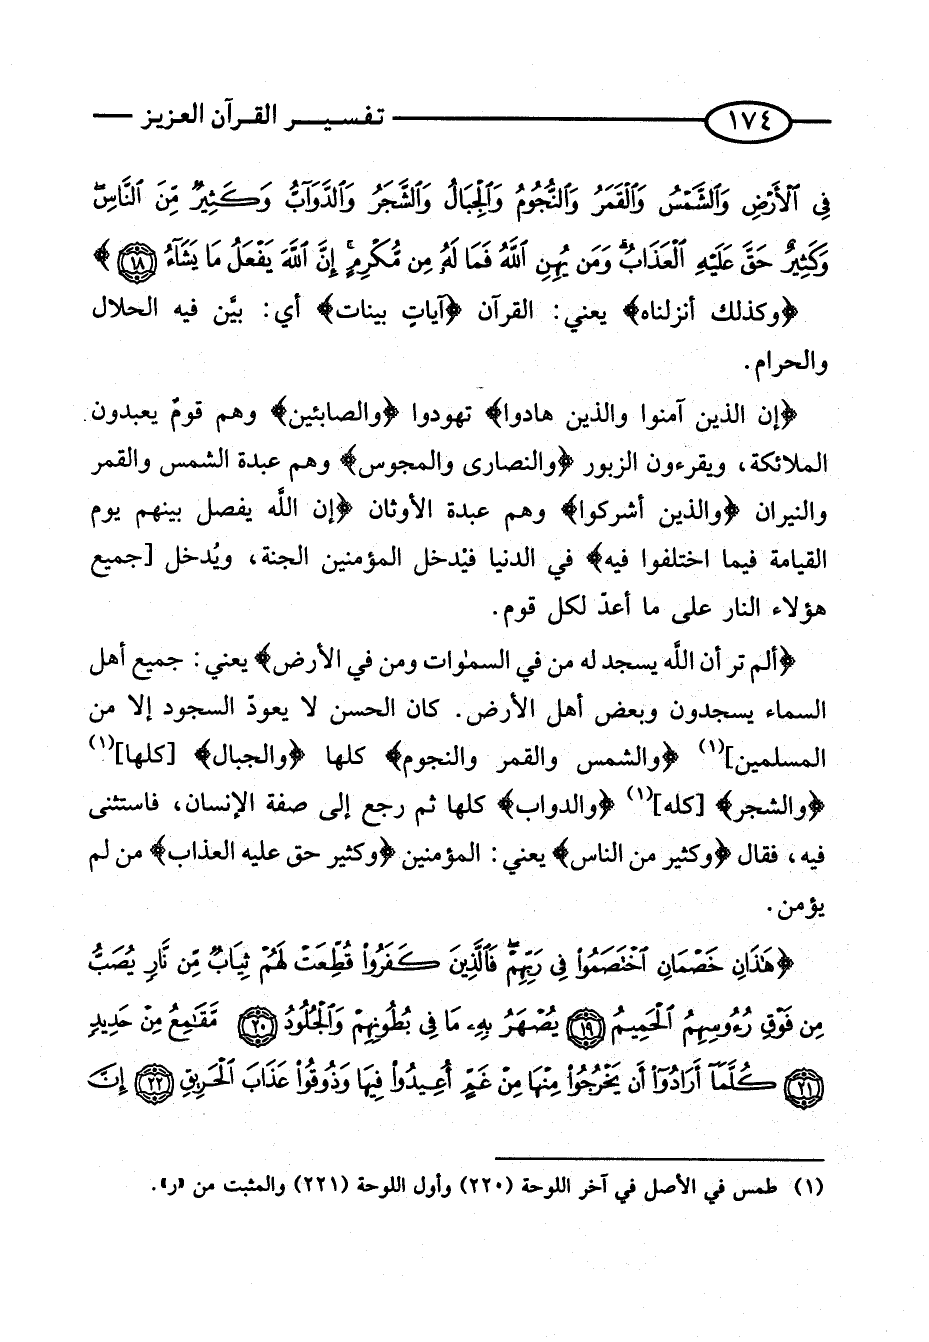 ١٧٤ تفسير القرآن العزيز
فِي ٱلْأَرْضِ وَٱلشَّمْسُ وَٱلْقَمَرُ وَٱلنُّجُومُ وَٱلْجِبَالُ وَٱلشَّجَرُ وَٱلدَّوَآبُّ وَكَثِيرٌ مِّنَ ٱلنَّاسِۖ
وَكَثِيرٌ حَقَّ عَلَيْهِ ٱلْعَذَابُۗ وَمَن يُهِنِ ٱللَّهُ فَمَا لَهُۥ مِن مُّكْرِمٍۚ إِنَّ ٱللَّهَ يَفْعَلُ مَا يَشَآءُ ١٨ ﴾
﴿وكذلك أنزلناه﴾ يعني: القرآن ﴿آياتٍ بينات﴾ أي: بيَّن فيه الحلال
والحرام.
﴿إن الذين آمنوا والذين هادوا﴾ تهودوا ﴿والصابئين﴾ وهم قومٌ يعبدون
الملائكة، ويقرءون الزبور ﴿والنصارى والمجوس﴾ وهم عبدة الشمس والقمر
والنيران ﴿والذين أشركوا﴾ وهم عبدة الأوثان ﴿إن اللَّه يفصل بينهم يوم
القيامة فيما اختلفوا فيه﴾ في الدنيا فيُدخل المؤمنين الجنة، ويُدخل [جميع
هؤلاء النار على ما أعدّ لكل قوم.
﴿ألم تر أن اللَّه يسجد له من في السمٰوات ومن في الأرض﴾ يعني: جميع أهل
السماء يسجدون وبعض أهل الأرض. كان الحسن لا يعودّ السجود إلا من
المسلمين](١) ﴿والشمس والقمر والنجوم﴾ كلها ﴿والجبال﴾ [كلها](١)
﴿والشجر﴾ [كله](١) ﴿والدواب﴾ كلها ثم رجع إلى صفة الإنسان، فاستثنى
فيه، فقال ﴿وكثير من الناس﴾ يعني: المؤمنين ﴿وكثير حق عليه العذاب﴾ من لم
يؤمن.
﴿هَٰذَانِ خَصْمَانِ ٱخْتَصَمُوا۟ فِي رَبِّهِمْۖ فَٱلَّذِينَ كَفَرُوا۟ قُطِّعَتْ لَهُمْ ثِيَابٌ مِّن نَّارٍ يُصَبُّ
مِن فَوْقِ رُءُوسِهِمُ ٱلْحَمِيمُ ١٩ يُصْهَرُ بِهِۦ مَا فِي بُطُونِهِمْ وَٱلْجُلُودُ ٢٠ مَّقَٰمِعُ مِنْ حَدِيدٍ
٢١ كُلَّمَآ أَرَادُوٓا۟ أَن يَخْرُجُوا۟ مِنْهَا مِنْ غَمٍّ أُعِيدُوا۟ فِيهَا وَذُوقُوا۟ عَذَابَ ٱلْحَرِيقِ ٢٢ إِنَّ
(١) طمس في الأصل في آخر اللوحة (٢٢٠) وأول اللوحة (٢٢١) والمثبت من «ر».